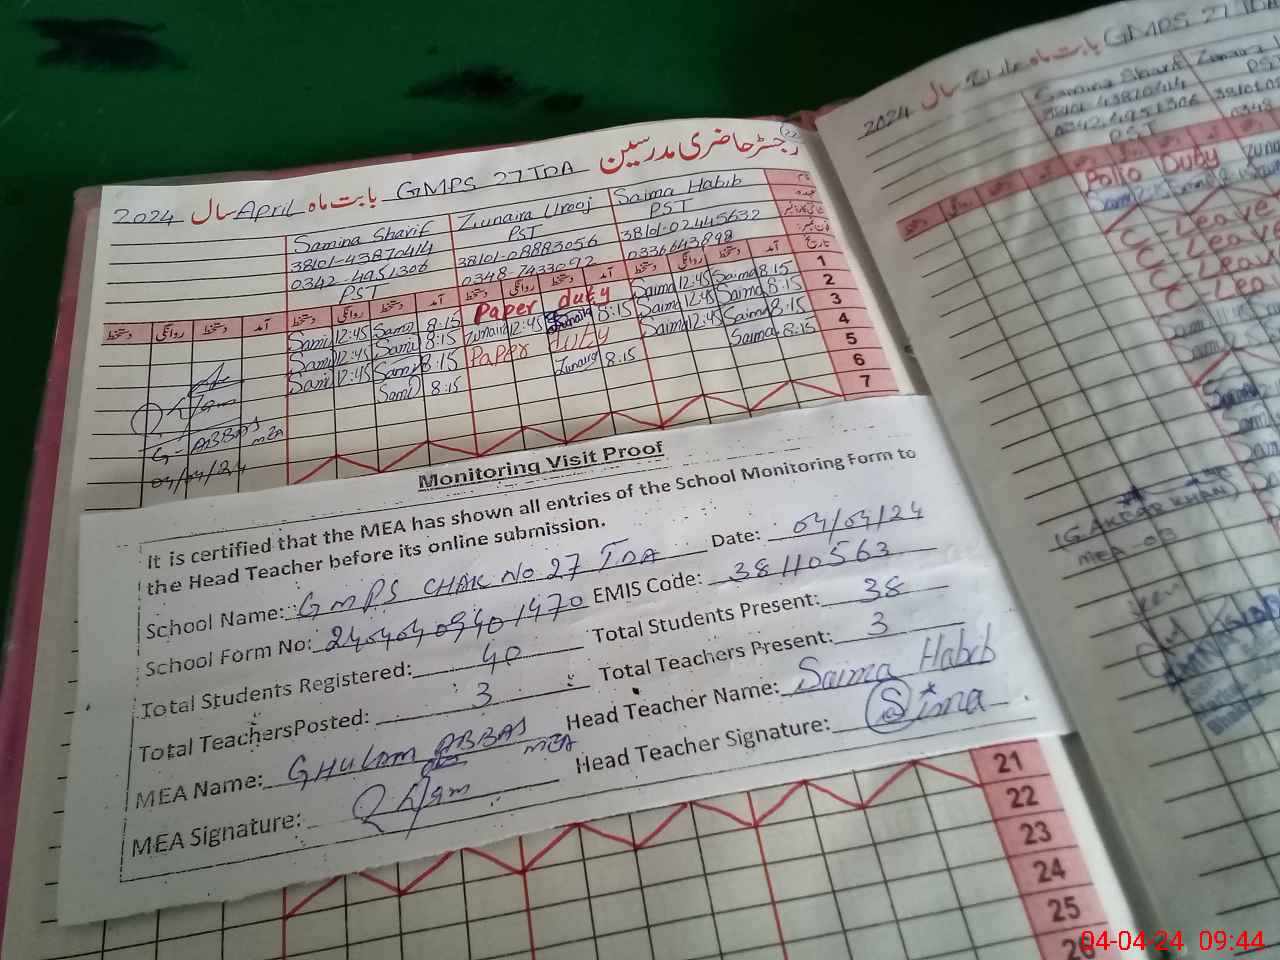 رجسٹر حاضری مدرسین
GMPS 27 TDA بابت ماہ April سال 2024
Samina Sharif Zunaira Urooj Saima Habib نام
PST PST
38101-4387044 38101-08883056 38101-02445632
0342-4951306 0348-7433092 0336643898
PST
دستخط روانگی دستخط آمد دستخط روانگی دستخط آمد دستخط روانگی دستخط آمد دستخط روانگی دستخط آمد تاریخ
Sami 12:45 Sami 8:15 Paper duty Saima 12:45 Saima 8:15 1
Sami 12:45 Sami 8:15 Zunaira 12:45 Zunaira 8:15 Saima 12:45 Saima 8:15 2
Sami 12:45 Sami 8:15 Paper duty Saima 12:45 Saima 8:15 3
Sami 8:15 Zunaira 8:15 Saima 8:15 4
5
6
7
G-ABBAS
MEA
04/04/24
Monitoring Visit Proof
It is certified that the MEA has shown all entries of the School Monitoring Form to
the Head Teacher before its online submission.
School Name: GMPS CHAK No 27 TDA Date: 04/04/24
School Form No: 24040409401470 EMIS Code: 38110563
Total Students Registered: 40 Total Students Present: 38
Total TeachersPosted: 3 Total Teachers Present: 3
MEA Name: GHULAM ABBAS MEA Head Teacher Name: Saima Habib
MEA Signature: Head Teacher Signature:
21
22
23
24
25
26
2024 سال بابت ماہ GMPS 27 TDA
Samina Sharif Zunaira
38101-4387044
0342-4951306
PST PST
0348
Polio Duty
Leave
Leave
Leave
Leave
(G. AKBAR KHAN)
MEA-03
04-04-24 09:44